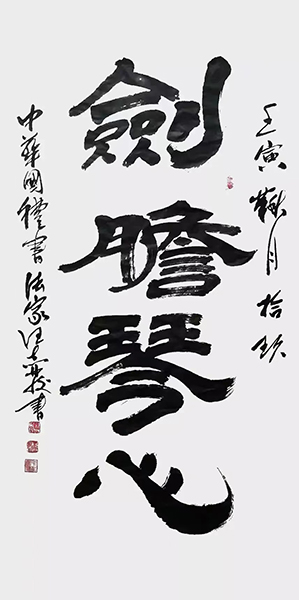 壬寅月拾玖
劍膽琴心
中華國禮書法家汪書